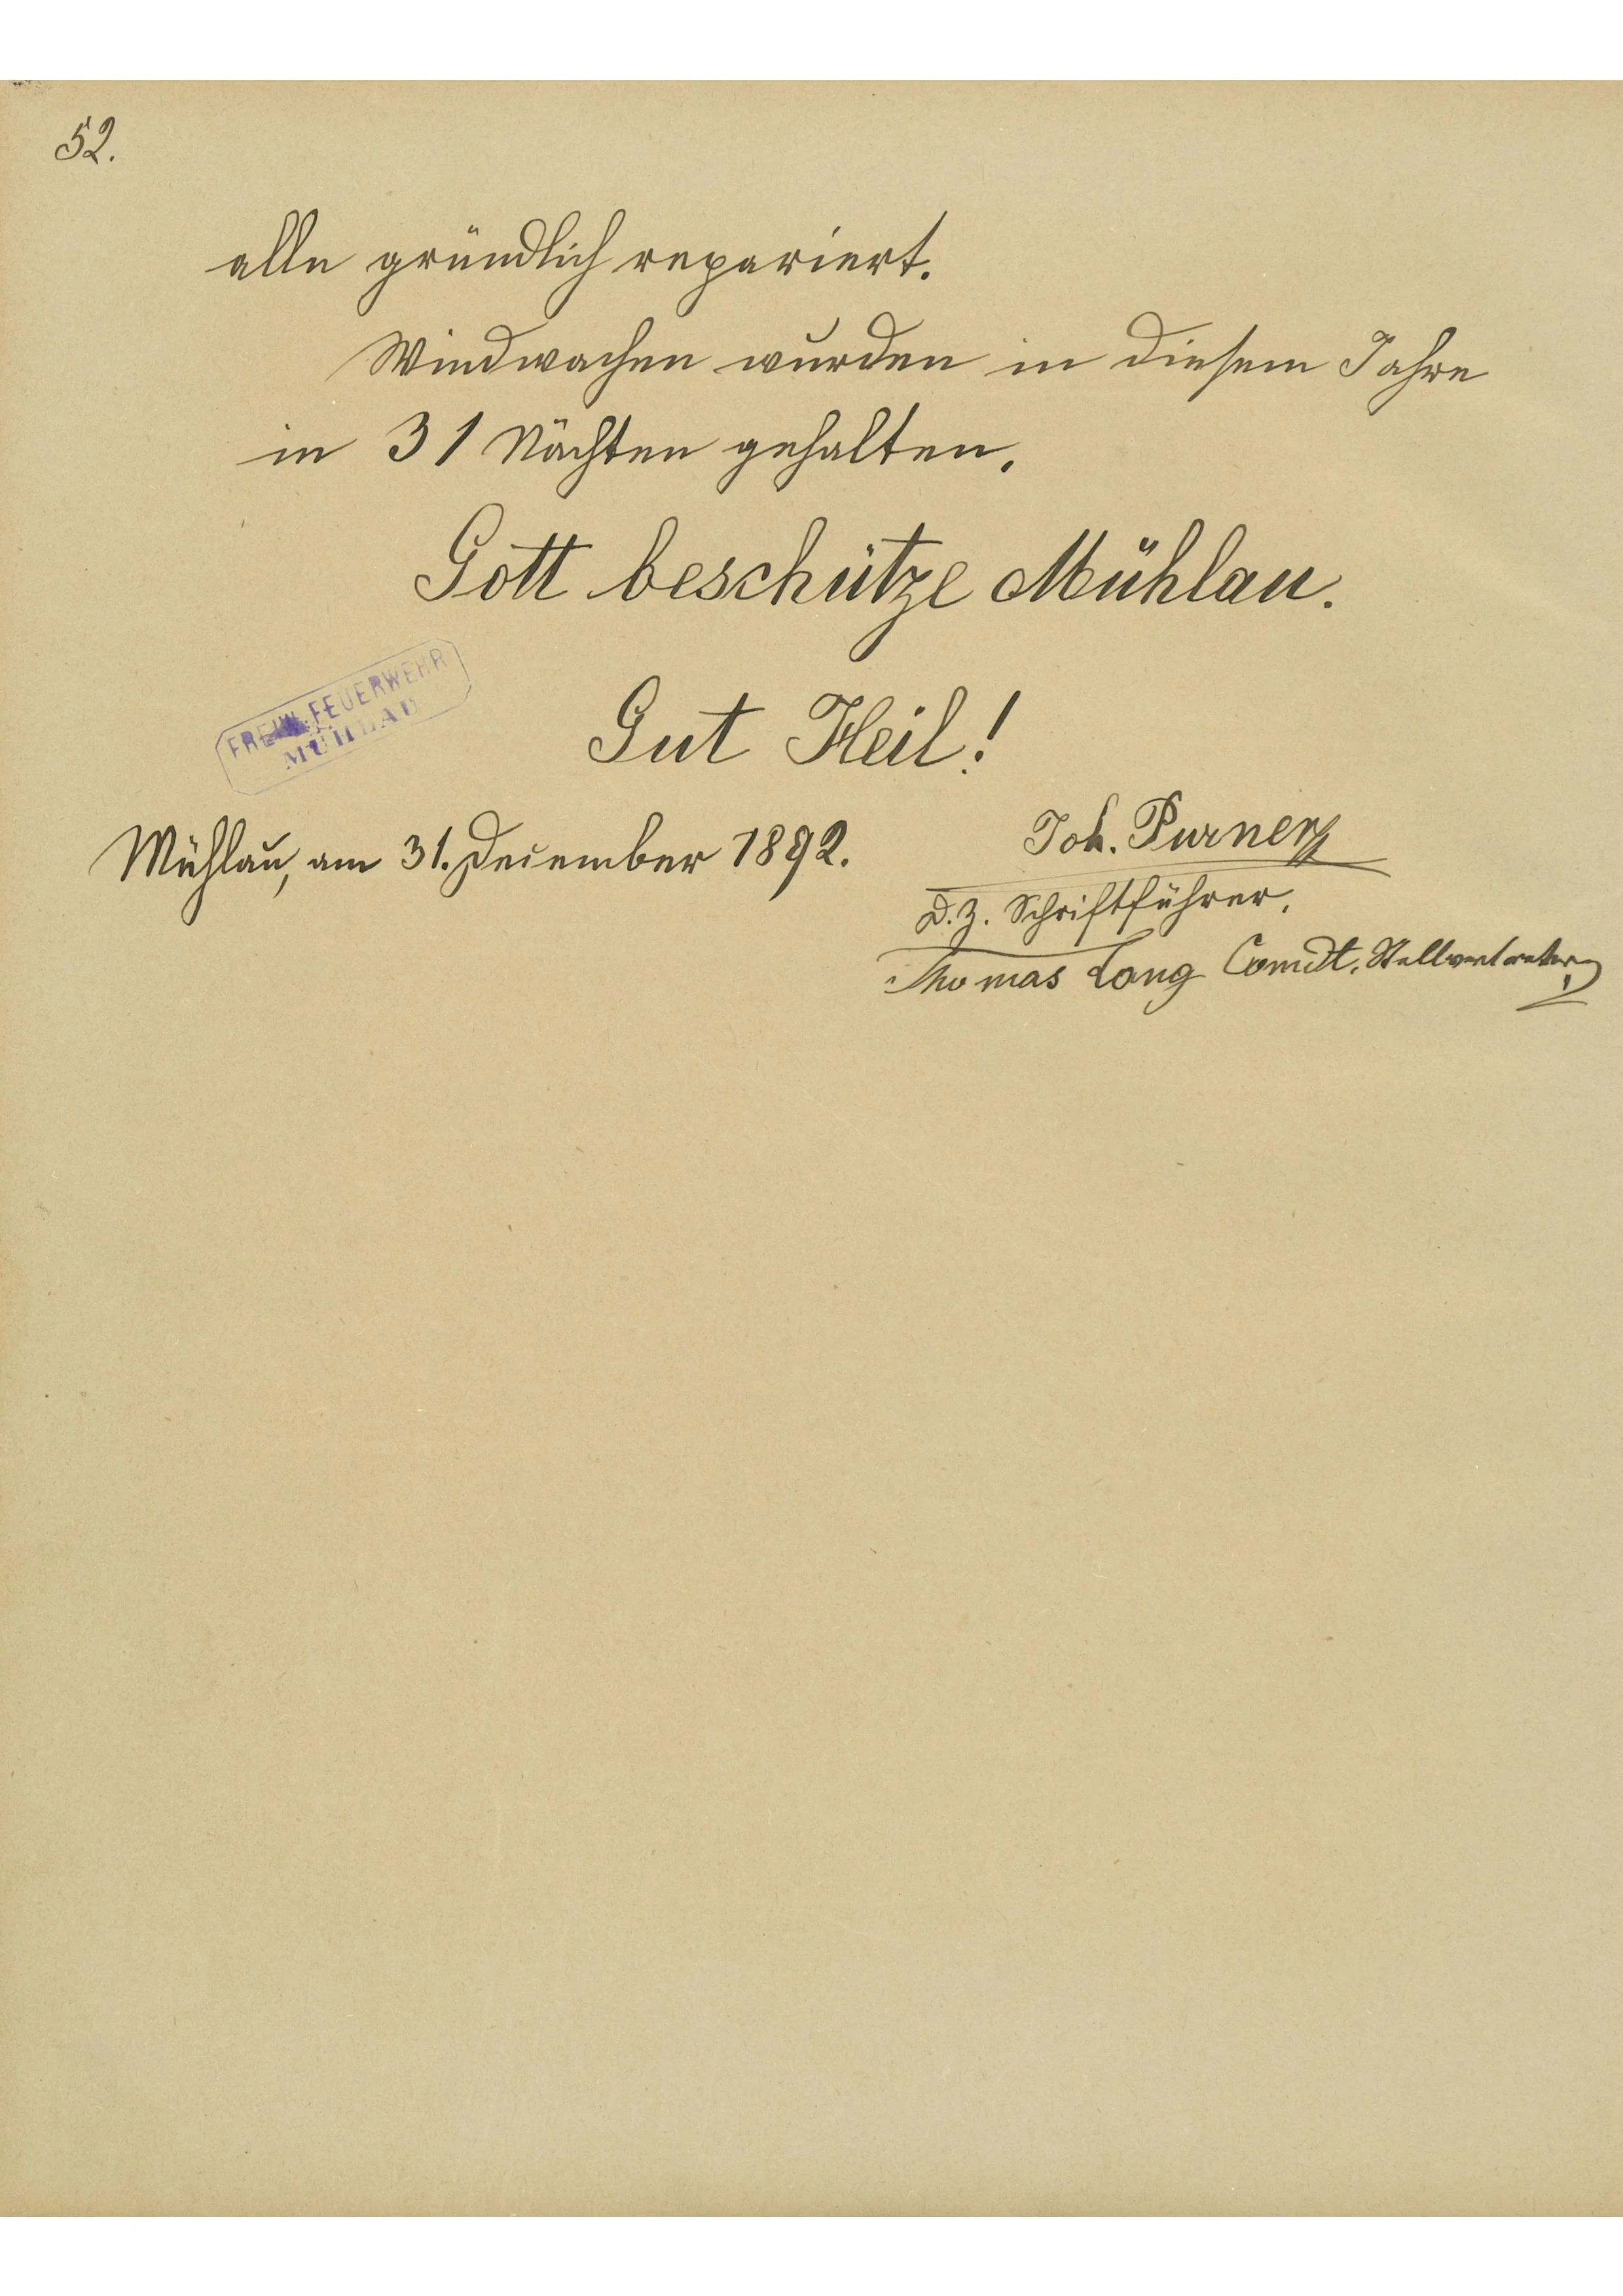 52.
alle gründlich repariert.
Windwachen wurden in diesem Jahre
in 31 Nächten gehalten.
Gott beschütze Mühlau.
FREIW. FEUERWEHR
MÜHLAU
Gut Heil!
Mühlau, am 31. December 1892.
Joh. Purner
d. z. Schriftführer.
Thomas Lang Comdt. Stellvertreter